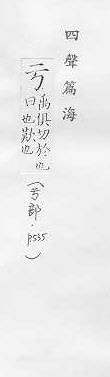 四聲篇海
亏
禹俱切於也
曰也欤也
(亏部·P535)